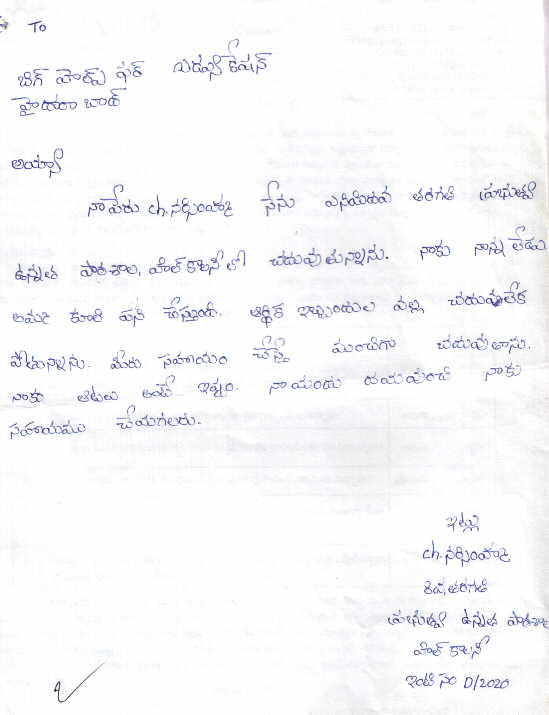 To
బిగ్ హెల్ప్ ఫర్ ఎడ్యుకేషన్
హైదరాబాద్
అయ్యా
నా పేరు ch. నర్సింహ్మా నేను ఎనిమిదవ తరగతి ప్రభుత్వ
ఉన్నత పాఠశాల, హాల్ కాలనీ లో చదువుతున్నాను. నాకు నాన్న లేడు
అమ్మ కూలి పని చేస్తుంది. ఆర్థిక ఇబ్బందుల వల్ల చదువులేక
పోతున్నాను. మీరు సహాయం చేస్తే మంచిగా చదువుతాను.
నాకు ఆటలు అంటే ఇష్టం. నా యందు దయవుంచి నాకు
సహాయము చేయగలరు.
ఇట్లు
ch. నర్సింహ్మా
8వ, తరగతి
ప్రభుత్వ ఉన్నత పాఠశాల
హాల్ కాలనీ
ఇంటి నెం D/2020